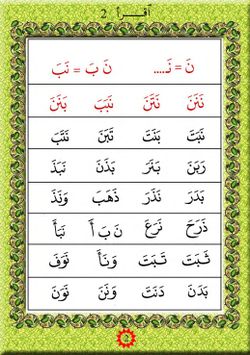 أقرأ 2
نَ = نَـ.... نَ بَ = نَبَ
نَنَنَ نَتَنَ نَبَبَ بَنَنَ
نَبَتَ بَنَتَ تَبَنَ نَتَبَ
رَبَنَ بَنَرَ بَذَنَ نَبَذَ
بَدَرَ نَذَرَ ذَهَبَ وَنَذَ
ذَرَحَ نَرَعَ نَ بَ أَ نَبَأَ
ثَبَتَ وَنَأَ نَوَفَ
بَدَنَ دَنَتَ وَنَنَ نَوَنَ